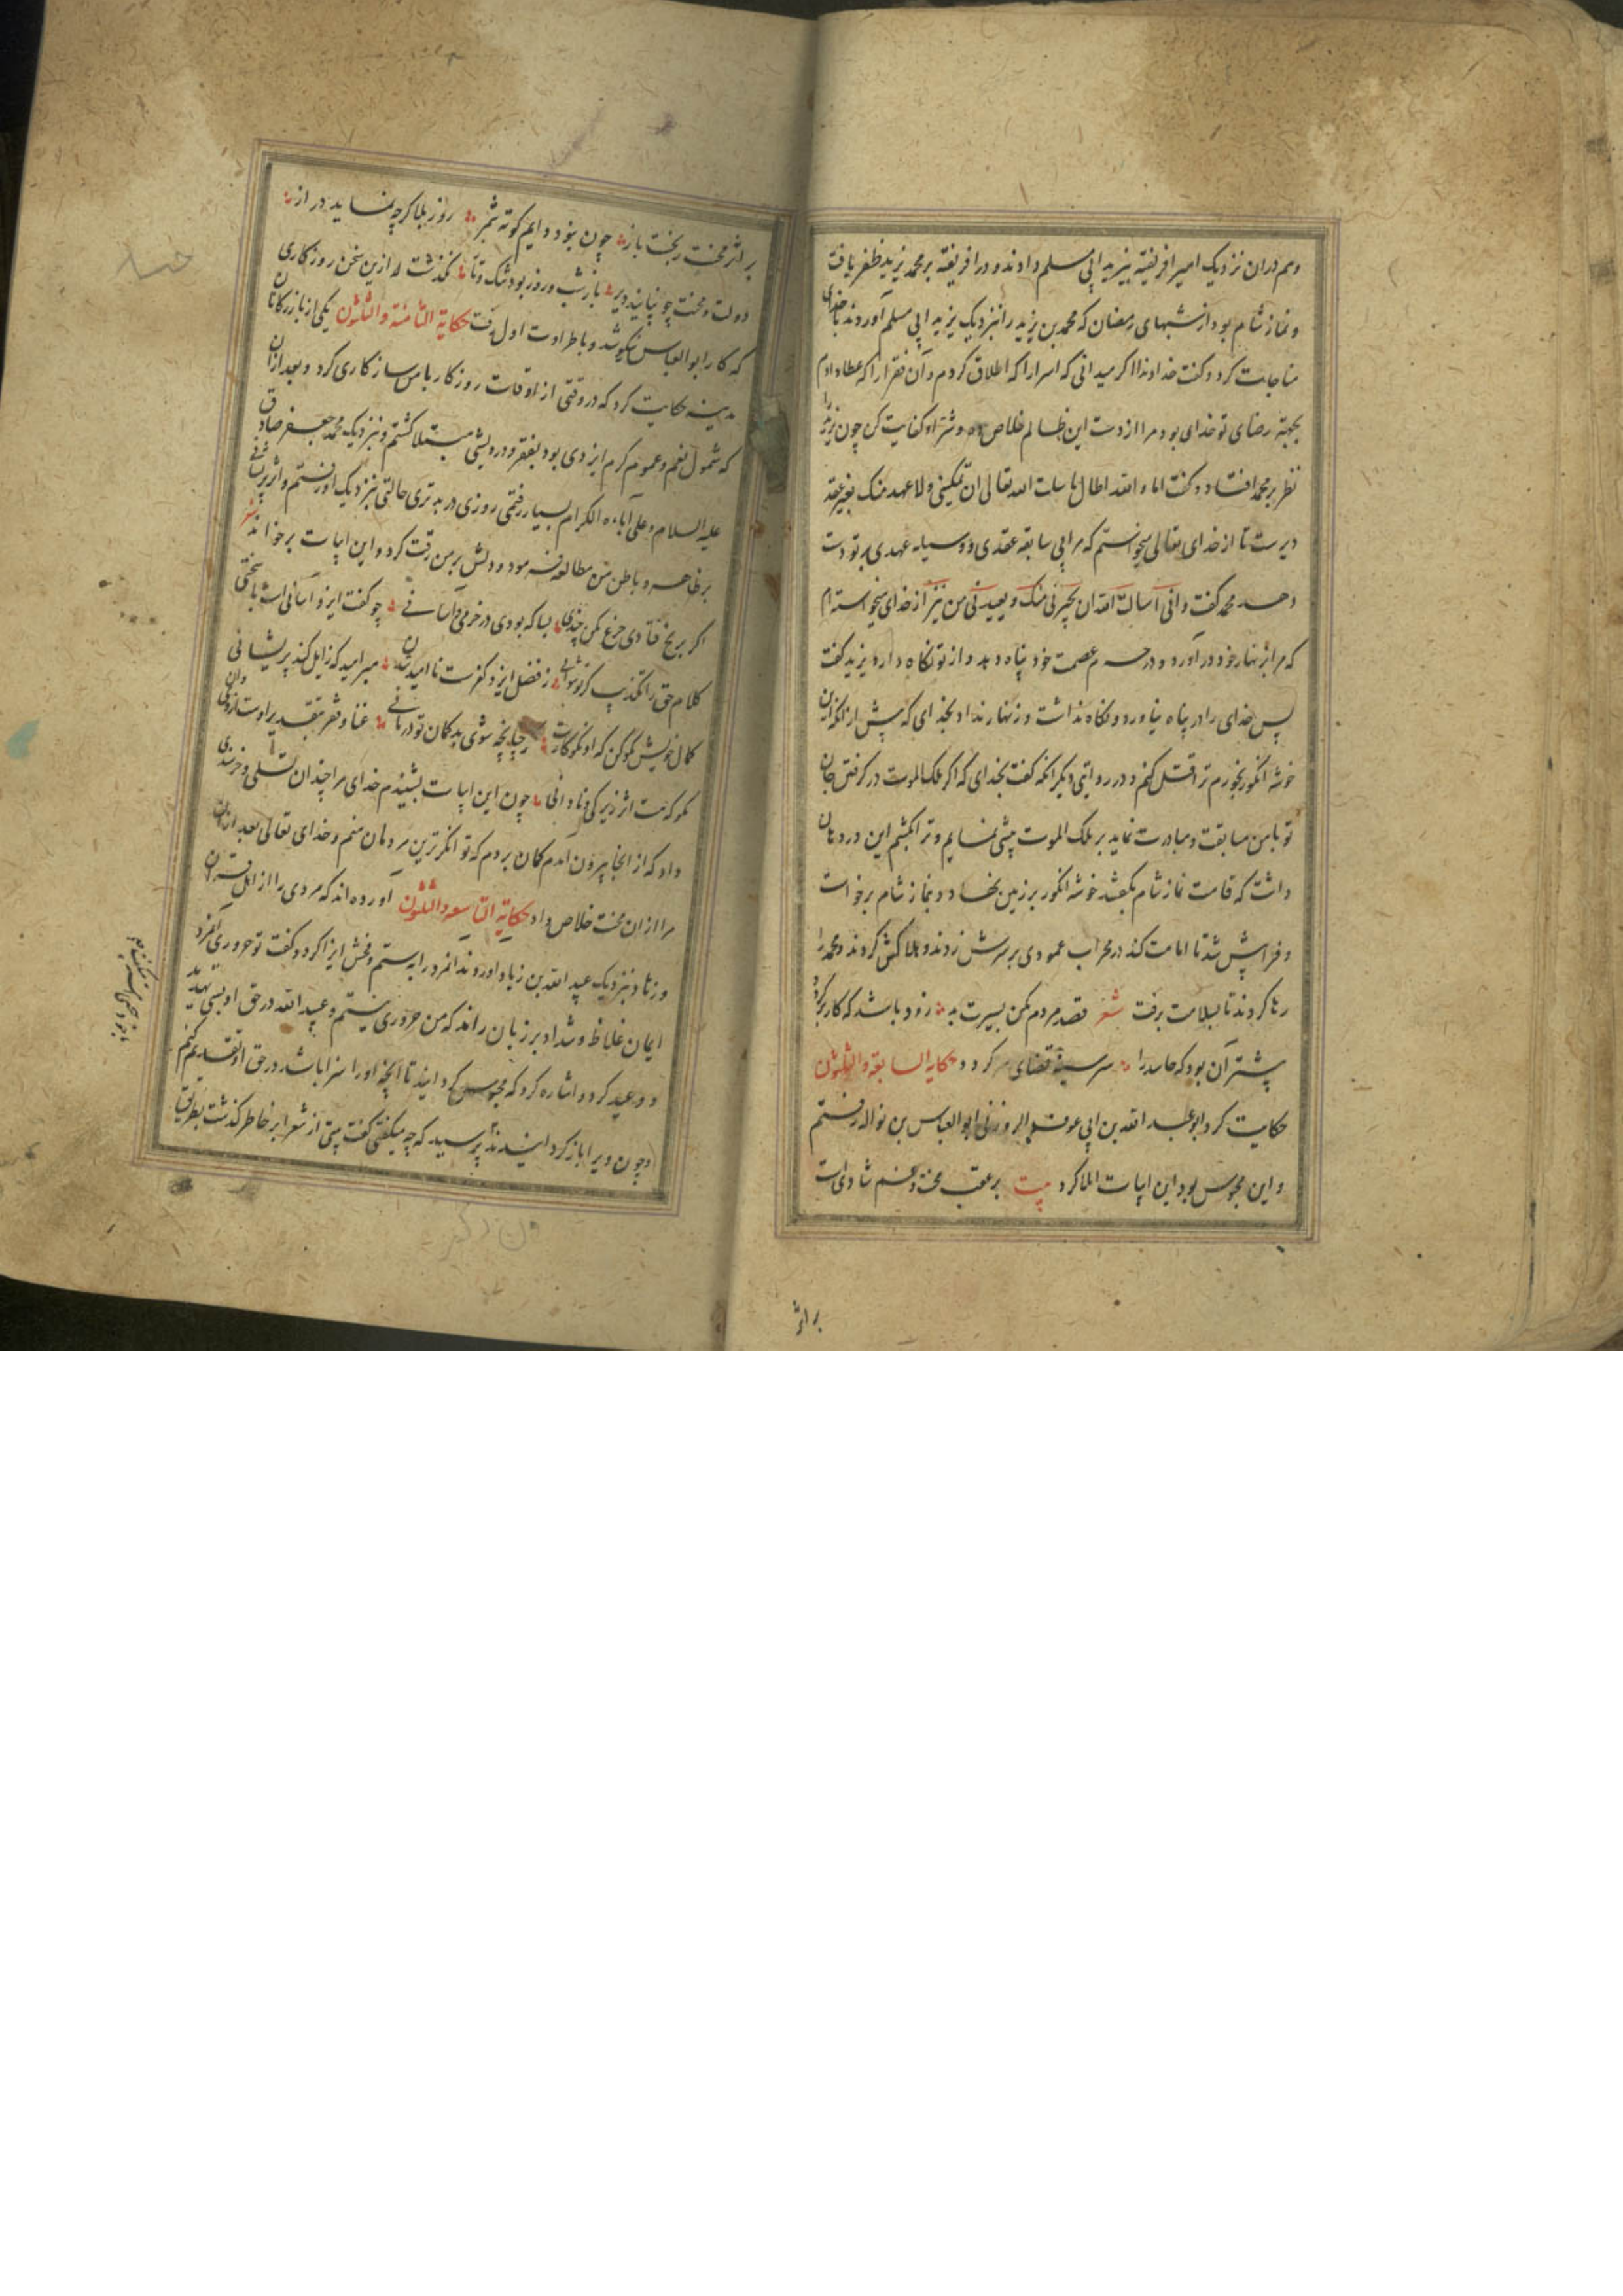 وهم دران نزدیک امیر افریقیه بیزید ابی مسلم دادند و در افریقیه بر محمد یزید ظفر یافت
و نماز شام بود از شبهای رمضان که محمد بن یزید را نزدیک یزید ابی مسلم آوردند با خدای
مناجات کرد و گفت خداوندا اگر میدانی که اسرا را که اطلاق کردم و آن فقرا را که عطا دادم
بجهة رضای تو خدای بود مرا از دست این ظالم خلاص ده و شر او کفایت کن چون یزید را
نظر بر محمد افتاد و گفت اما و الله لطال ما سالت الله تعالی ان یمکننی ولا عهد منک بغیر عقد
دیرست تا از خدای تعالی میخواستم که مرا بی سابقه عقدی و وسیله عهدی بر تو دست
دهد محمد گفت وانی اسال الله ان یجیرنی منک ویعیذنی من نیز از خدای میخواسته ام
که مرا بزنهار خود در آورد و در حرم عصمت خود پناه دهد و از تو نگاه دارد یزید گفت
پس خدای را در پناه نیاورد و نگاه نداشت و زنهار نداد بخدای که پیش از انکه این
خوشه انگور بخورم ترا قتل کنم و در روایتی دیگر انکه گفت بخدای که اگر ملک الموت در گرفتن جان
تو با من مسابقت و مبادرت نماید بر ملک الموت پیشی نمایم و ترا بکشم این در دهان
داشت که قامت نماز شام بگفتند خوشه انگور بر زمین نهاد و بنماز شام برخواست
و فرا پیش شد تا امامت کند در محراب عمودی بر سرش زدند و هلاکش کردند و محمد را
رها کردند تا بسلامت برفت شعر قصد مردم مکن بسیرت بد زود باشد که کار برگردد
پیشتر آن بود که حاسد را سر سینه قضای سر گردد حکایه السابعة والثلثون
حکایت کرد ابو عبد الله بن ابی عوف البزوری ابو العباس بن نواله رفتم
و این محبوس بود این ابیات املا کرد بیت بر عقب محنت و غم شادی است
بر اثر
بر اثر محنت بخت باز چون بنود دایم کوته شمر روز بلا گرچه نماید دراز
دولت و محنت چو نپایند دیر باز شب و روز بود شک و تاز نگذشت از این سخن روزگاری
که کار ابو العباس نکو شد و با طراوت اول رفت حکایة الثامنة والثلثون یکی از بازرگانان
مدینه حکایت کرد که در وقتی از اوقات روزگار با من سازگاری کرد و بعد از ان
که شمول نعم و عموم کرم ایزدی بود بفقر و درویشی مبتلا گشتم و نزدیک محمد جعفر صادق
علیه السلام و علی آباءه الکرام بسیار رفتمی روزی در بدتری حالتی نزدیک او رفتم و اثر پریشانی
بر ظاهر و باطن من مطالعه فرمود و دلش بر من رقت کرد و این ابیات برخواند شعر
اگر برنج فتادی جزع مکن چندی بسا که بودی در خرمی و آسانی چو گفت ایزد آسانی است با سختی
کلام حق را تکذیب کرد نتوانی ز فضل ایزد کفرست ناامید شدن مبر امید که زایل کند پریشانی
گمان خویش نکو کن که او نکوکارست چنانچه شوی بد گمان تو در مانی غنا و فقر بتقدیر اوست از وی دان
مگو که هست اثر زیرکی و نادانی چون این ابیات بشنیدم خدای مرا چندان تسلی و خرسندی
داد که از انجا بیرون آمدم گمان بردم که توانگرترین مردمان منم و خدای تعالی بعد از ان
مرا از ان محنت خلاص داد حکایة التاسعه والثلثون آورده اند که مردی را از اهل قران
وزهاد نزدیک عبید الله بن زیاد اوردند انمرد را به ستم و فحش ایذا کرد و گفت تو حروری انمرد
ایمان غلاظ و شداد بر زبان راند که من حروری نیستم و عبید الله در حق او بسی تهدید
و وعید کرد و اشاره کرد که محبوس گردانید تا آنچه او را سزا باشد در حق او تقدیم کنم
و چون ویرا باز گردانیدند پرسید که چه میگفتی گفت بیتی از شعرا بر خاطر گذشت بطریق